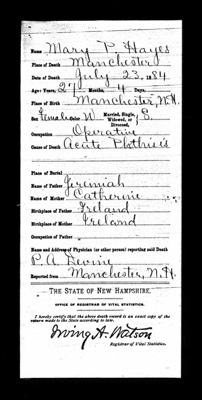 Name Mary P. Hayes
Place of Death Manchester
Date of Death July 23, 1884
Age: Years, 27 Months, 4 Days,
Place of Birth Manchester, N.H.
Sex Female Color W. Married, Single, Widowed, or Divorced, S.
Occupation Operative
Cause of Death Acute Phthisis
Place of Burial
Name of Father Jeremiah
Name of Mother Catherine
Birthplace of Father Ireland
Birthplace of Mother Ireland
Occupation of Father
Name and Address of Physician (or other person) reporting said Death
P. A. Devine
Reported from Manchester, N.H.
THE STATE OF NEW HAMPSHIRE.
OFFICE OF REGISTRAR OF VITAL STATISTICS.
I hereby certify that the above death record is an exact copy of the return made to the State according to law.
Irving A. Watson
Registrar of Vital Statistics.